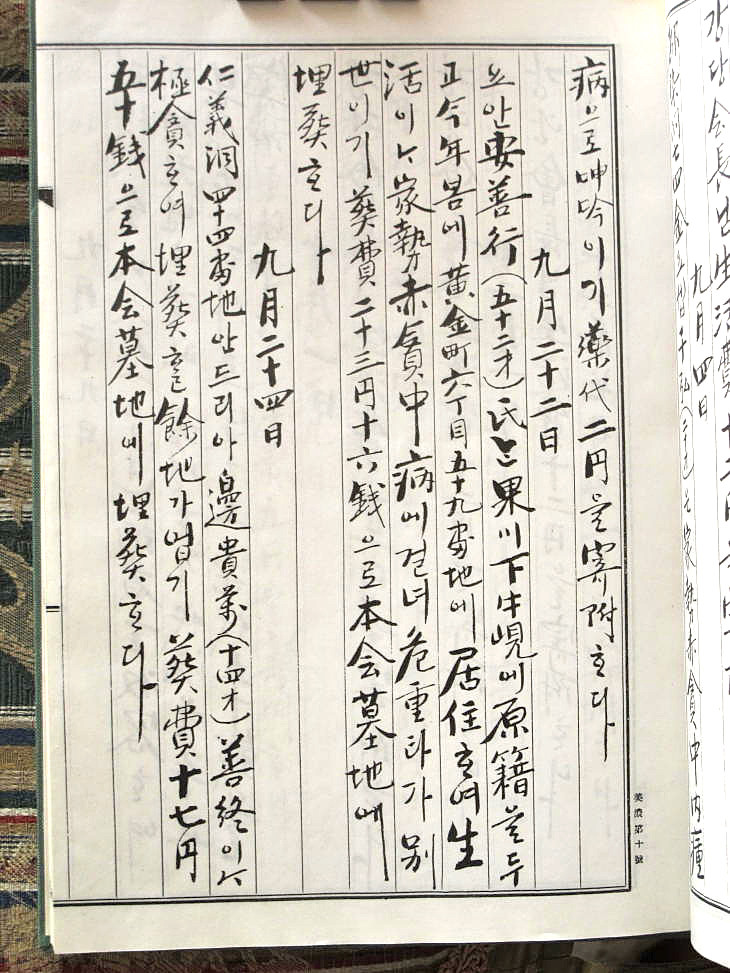 강당会長
九月四日
病으로呻吟이기藥代二円을寄附ᄒᆞ다
九月二十二日
요안安善行(五十二才)氏는果川下牛峴에原籍을두
고今年봄에黃金町六丁目五十九番地에居住ᄒᆞ여生
活이나家勢赤貧中病에걸녀危重타가別
世이기葬費二十三円十六錢으로本会墓地에
埋葬ᄒᆞ다
九月二十四日
仁義洞四十四番地안드리아邊貴萬(十四才)善終이나
極貧ᄒᆞ여埋葬ᄒᆞᆯ餘地가업기葬費十七円
五十錢으로本会墓地에埋葬ᄒᆞ다
美濃第十號